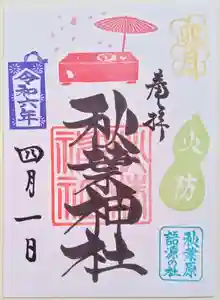 奉拝
火防
秋葉原
語源の社
秋葉神社
令和六年
四月一日